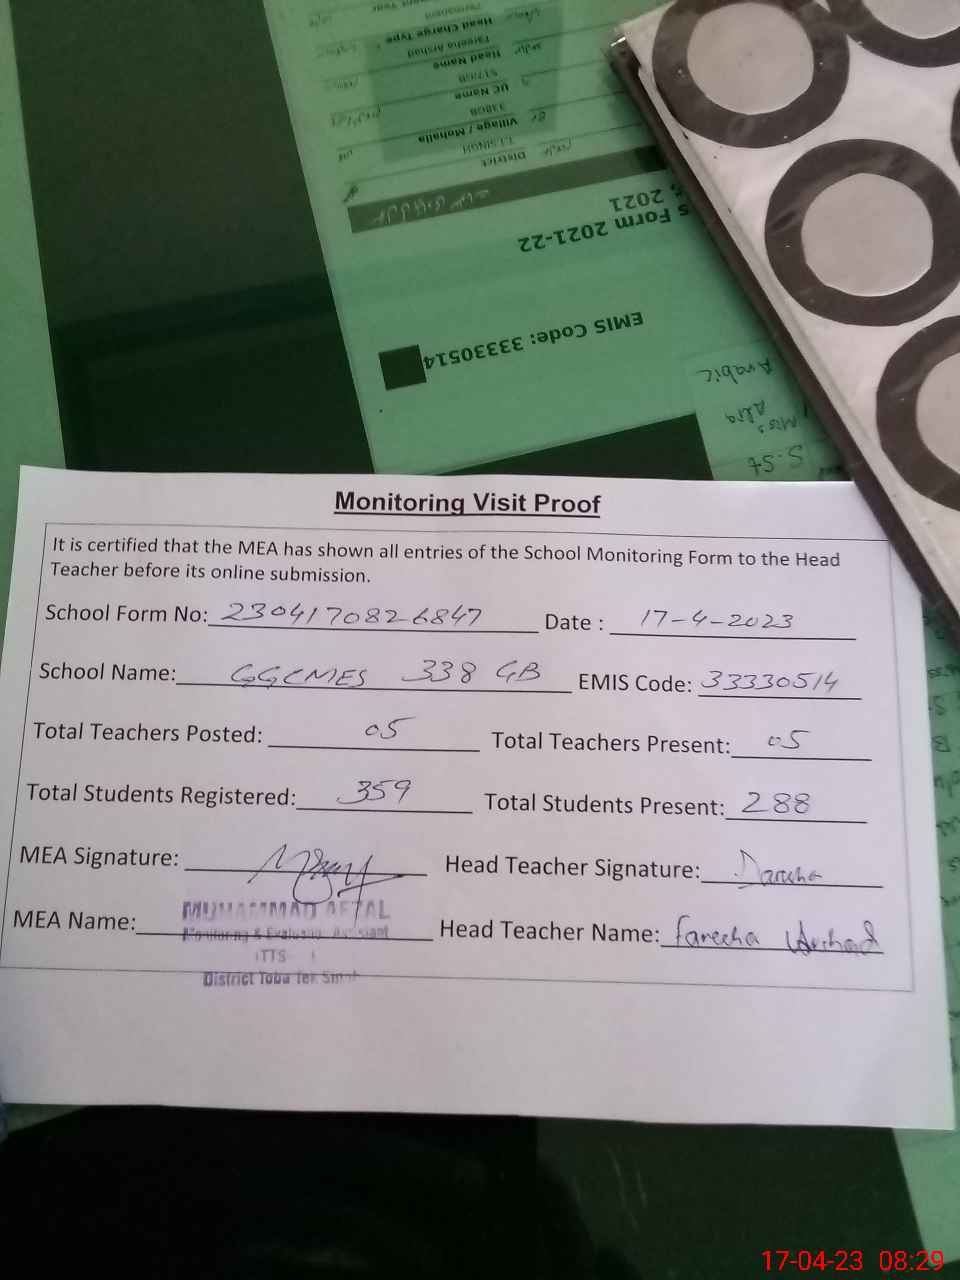 Permanent
Head Charge Type
Fareeha Arshad
Head Name
517/GB
UC Name
338GB
Village / Mohalla
T.T.SINGH
District
2021
s Form 2021-22
EMIS Code: 33330514
Arabic
Miss
S.St
Monitoring Visit Proof
It is certified that the MEA has shown all entries of the School Monitoring Form to the Head
Teacher before its online submission.
School Form No: 2304170826847 Date : 17-4-2023
School Name: GGCMES 338 GB EMIS Code: 33330514
Total Teachers Posted: 05 Total Teachers Present: 05
Total Students Registered: 359 Total Students Present: 288
MEA Signature: Head Teacher Signature:
MEA Name: MUHAMMAD AFZAL Head Teacher Name: Fareeha Arshad
Monitoring & Evaluation Assistant
District Toba Tek Singh
17-04-23 08:29